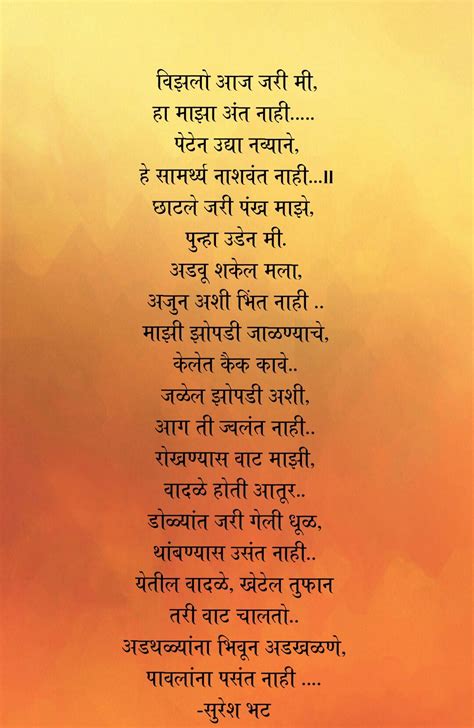 विझलो आज जरी मी,
हा माझा अंत नाही.....
पेटेन उद्या नव्याने,
हे सामर्थ्य नाशवंत नाही...॥
छाटले जरी पंख माझे,
पुन्हा उडेन मी.
अडवू शकेल मला,
अजुन अशी भिंत नाही ..
माझी झोपडी जाळण्याचे,
केलेत कैक कावे..
जळेल झोपडी अशी,
आग ती ज्वलंत नाही..
रोखण्यास वाट माझी,
वादळे होती आतूर..
डोळ्यांत जरी गेली धूळ,
थांबण्यास उसंत नाही..
येतील वादळे, खेटेल तुफान
तरी वाट चालतो..
अडथळ्यांना भिवून अडखळणे,
पावलांना पसंत नाही ....
-सुरेश भट